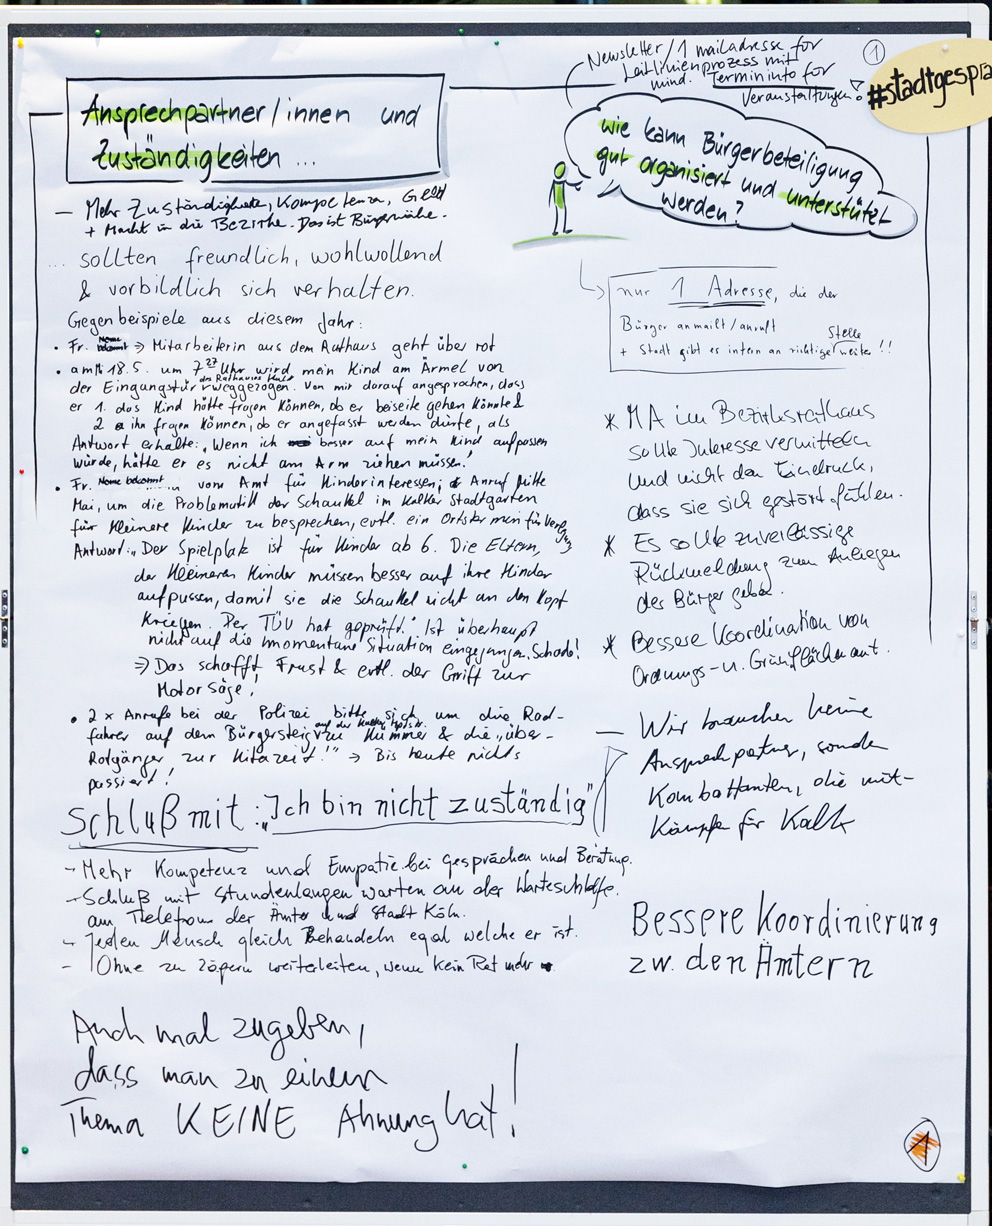 Newsletter / 1 mailadresse for
Leitlinienprozess mit
mind. Termininfo for
Veranstaltungen!
1
#stadtgesprä
Ansprechpartner/innen und
Zuständigkeiten ...
wie kann Bürgerbeteiligung
gut organisiert und unterstützt
werden?
– Mehr Zuständigkeite, Kompetenzen, Geld
+ Macht in die Bezirke. Das ist Bürgernähe.
... sollten freundlich, wohlwollend
& vorbildlich sich verhalten.
Gegenbeispiele aus diesem Jahr:
• Fr. Name bekannt ⇒ Mitarbeiterin aus dem Rathaus geht über rot
• am 18.5. um 7 27 Uhr wird mein Kind am Ärmel von
der Eingangstür des Rathauses Kalk weggezogen. Von mir darauf angesprochen, dass
er 1. das Kind hätte fragen können, ob er beiseite gehen könnte &
2. ihn fragen können, ob er angefasst werden dürfe, als
Antwort erhalte: „Wenn ich besser auf mein Kind aufpassen
würde, hätte er es nicht am Arm ziehen müssen."
• Fr. Name bekannt vom Amt für Kinderinteressen; Anruf Mitte
Mai, um die Problematik der Schaukel im Kalker Stadtgarten
für kleinere Kinder zu besprechen, evtl. ein Ortstermin
Antwort: „Der Spielplatz ist für Kinder ab 6. Die Eltern,
der kleineren Kinder müssen besser auf ihre Kinder
aufpassen, damit sie die Schaukel nicht an den Kopf
kriegen. Der TÜV hat geprüft." Ist überhaupt
nicht auf die momentane Situation eingegangen. Schade!
⇒ Das schafft Frust & evtl. der Griff zur
Motorsäge!
• 2 x Anrufe bei der Polizei bitte sich um die Rad-
fahrer auf dem Bürgersteig auf der Kalker Hptstr. zu kümmern & die „über-
Rotgänger zur Kitazeit!" → Bis heute nichts
passiert!
Schluß mit: „Ich bin nicht zuständig"
– Mehr Kompetenz und Empatie bei Gesprächen und Beratung.
– Schluß mit Stundenlangen warten an der Warteschleife.
am Telefon der Ämter und Stadt Köln.
– Jeden Mensch gleich Behandeln egal welche er ist.
– Ohne zu zögern weiterleiten, wenn kein Rat mehr
Auch mal zugeben,
dass man zu einem
Thema KEINE Ahnung hat!
nur 1 Adresse, die der
Bürger anmailt/anruft
+ Stadt gibt es intern an richtige Stelle weiter!!
* MA im Bezirksrathaus
sollte Interesse vermitteln
und nicht den Eindruck,
dass sie sich gestört fühlen.
* Es sollte zuverlässige
Rückmeldung zum Anliegen
der Bürger geben.
* Bessere Koordination von
Ordnungs- u. Grünflächenamt.
– Wir brauchen keine
Ansprechpartner, sondern
Kombattanten, die mit-
kämpfen für Kalk
Bessere Koordinierung
zw. den Ämtern
1